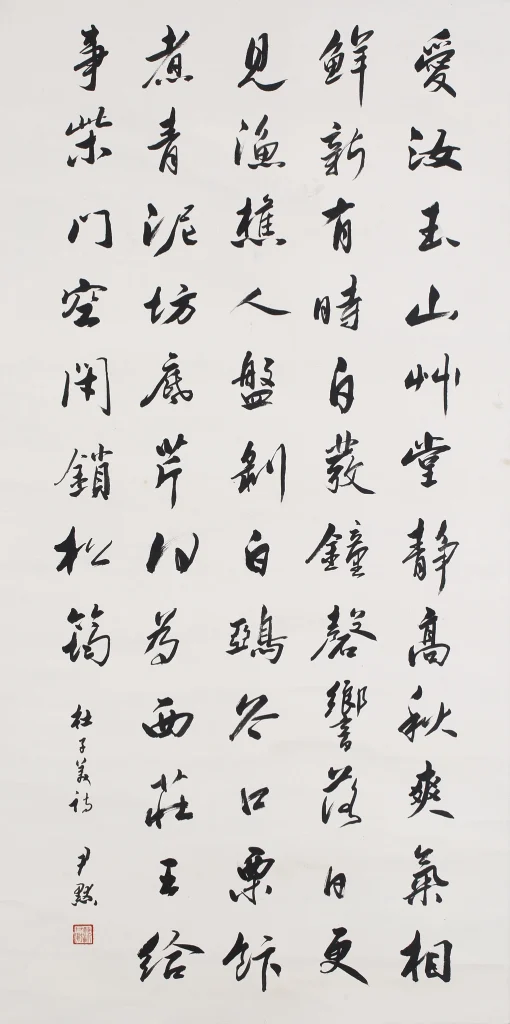 愛汝玉山艸堂静高秋爽氣相
鮮新有時自發鐘磬響落日更
見漁樵人盤剝白鵶谷口栗飰
煮青泥坊底芹何為西莊王給
事柴門空閑鎖松筠
杜子美詩 尹默